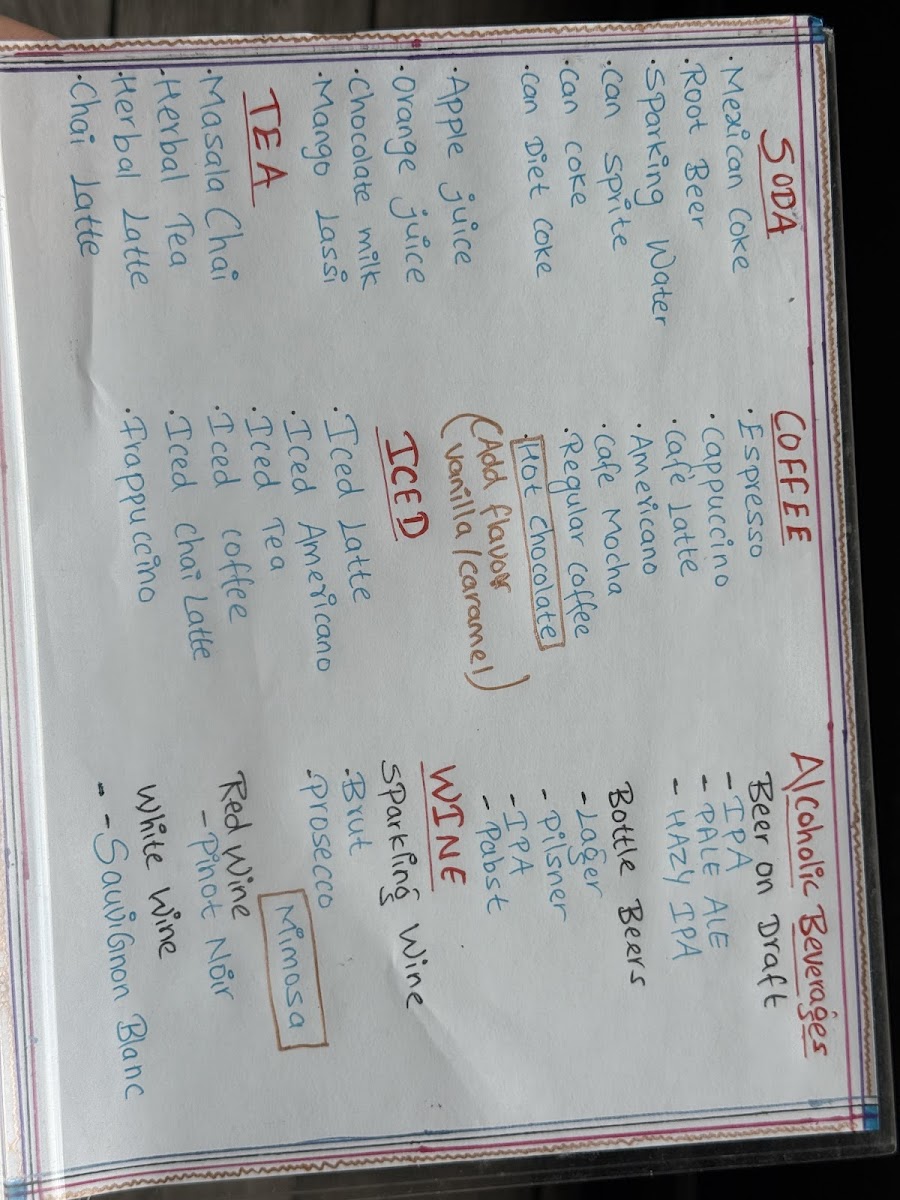 SODA
. Mexican Coke
. Root Beer
. Sparking Water
. Can Sprite
. Can Coke
. Can Diet Coke
. Apple juice
. Orange juice
. Chocolate milk
. Mango Lassi
TEA
. Masala Chai
. Herbal Tea
. Herbal Latte
. Chai Latte
COFFEE
. Espresso
. Cappuccino
. Cafe Latte
. Americano
. Cafe Mocha
. Regular coffee
. Hot chocolate
(Add flavor
vanilla/caramel)
ICED
. Iced Latte
. Iced Americano
. Iced Tea
. Iced coffee
. Iced chai Latte
. Frappuccino
Alcoholic Beverages
Beer on Draft
- IPA
- PALE ALE
- HAZY IPA
Bottle Beers
- Lager
- Pilsner
- IPA
- Pabst
WINE
Sparkling Wine
. Brut
. Prosecco
Mimosa
Red Wine
- Pinot Noir
White Wine
- Sauvignon Blanc